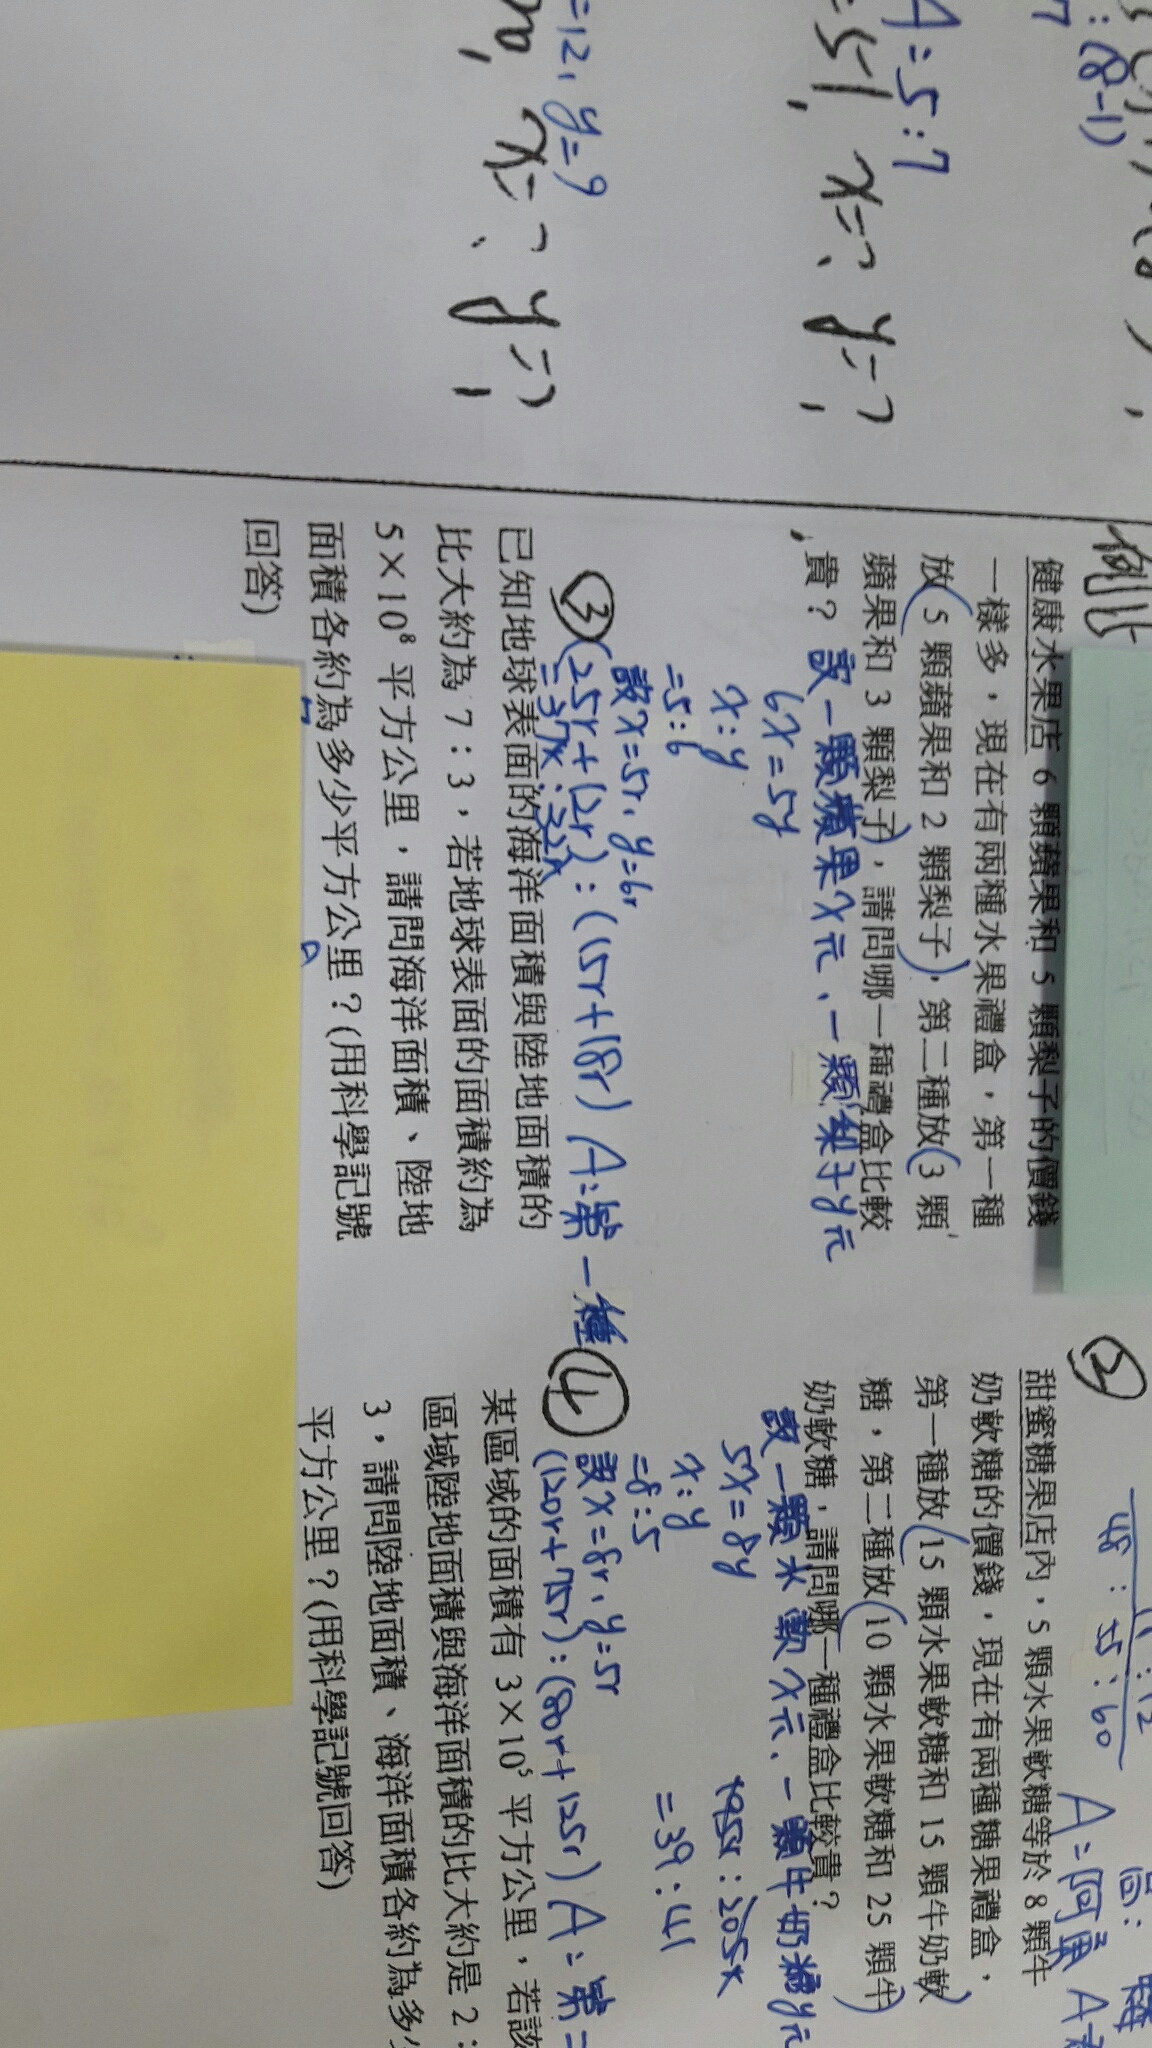 :(8-1)
7
A=5:7
=51, x=?, y=?
=12, y=9
x=?, y=?
例1
健康水果店 6 顆蘋果和 5 顆梨子的價錢
一樣多，現在有兩種水果禮盒，第一種
放(5 顆蘋果和 2 顆梨子)，第二種放(3 顆
蘋果和 3 顆梨子)，請問哪一種禮盒比較
貴？
設一顆蘋果x元、一顆梨子y元
6x=5y
x:y
=5:6
設x=5r, y=6r
(25r+12r):(15r+18r) A:第一種
③
已知地球表面的海洋面積與陸地面積的
比大約為 7：3，若地球表面的面積約為
5×10⁸ 平方公里，請問海洋面積、陸地
面積各約為多少平方公里？(用科學記號
回答)
48:55:60
②
甜蜜糖果店內，5 顆水果軟糖等於 8 顆牛
奶軟糖的價錢，現在有兩種糖果禮盒，
第一種放(15 顆水果軟糖和 15 顆牛奶軟
糖，第二種放(10 顆水果軟糖和 25 顆牛)
奶軟糖，請問哪一種禮盒比較貴？
5x=8y
x:y
=8:5
設x=8r, y=5r
(120r+75r):(80r+125r) A:第二
=39:41
④
某區域的面積有 3×10⁵ 平方公里，若該
區域陸地面積與海洋面積的比大約是 2：
3，請問陸地面積、海洋面積各約為多少
平方公里？(用科學記號回答)